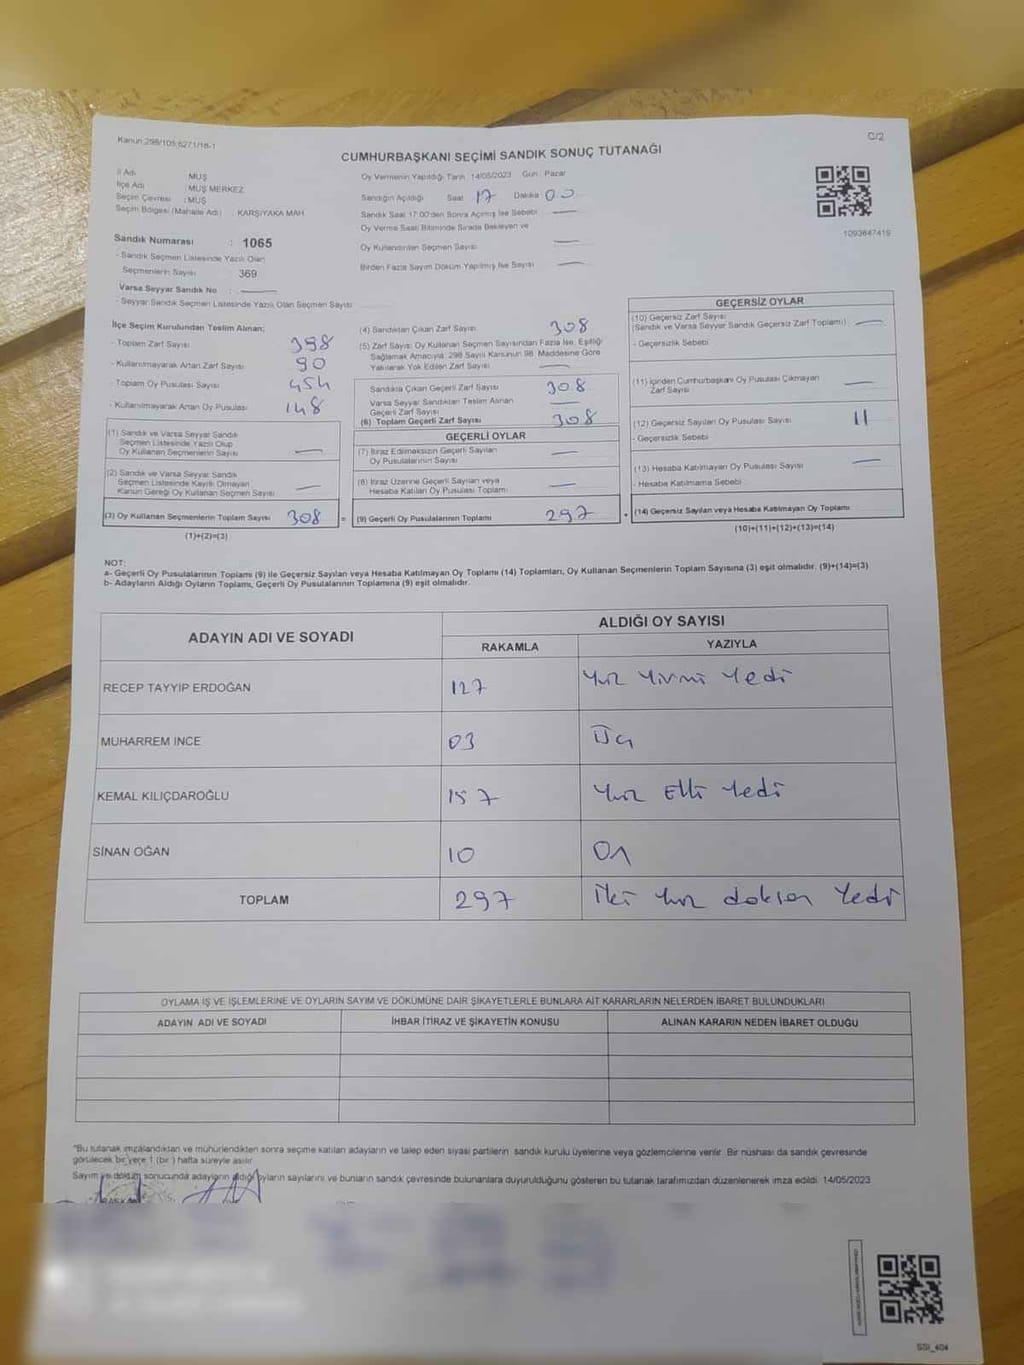 Kanun:298/105;6271/18-1
C/2
CUMHURBAŞKANI SEÇİMİ SANDIK SONUÇ TUTANAĞI
İl Adı : MUŞ
İlçe Adı : MUŞ MERKEZ
Seçim Çevresi : MUŞ
Seçim Bölgesi (Mahalle Adı) : KARŞIYAKA MAH.
Sandık Numarası : 1065
- Sandık Seçmen Listesinde Yazılı Olan
Seçmenlerin Sayısı : 369
Varsa Seyyar Sandık No :
- Seyyar Sandık Seçmen Listesinde Yazılı Olan Seçmen Sayısı:
Oy Vermenin Yapıldığı Tarih :14/05/2023 Gün : Pazar
Sandığın Açıldığı Saat 17 Dakika 00
Sandık Saat 17:00'den Sonra Açılmış İse Sebebi :
Oy Verme Saati Bitiminde Sırada Bekleyen ve
Oy Kullandırılan Seçmen Sayısı :
Birden Fazla Sayım Döküm Yapılmış İse Sayısı :
1093647419
İlçe Seçim Kurulundan Teslim Alınan;
- Toplam Zarf Sayısı : 398
- Kullanılmayarak Artan Zarf Sayısı : 90
- Toplam Oy Pusulası Sayısı : 454
- Kullanılmayarak Artan Oy Pusulası : 148
(1) Sandık ve Varsa Seyyar Sandık
Seçmen Listesinde Yazılı Olup
Oy Kullanan Seçmenlerin Sayısı
(2) Sandık ve Varsa Seyyar Sandık
Seçmen Listesinde Kayıtlı Olmayan
Kanun Gereği Oy Kullanan Seçmen Sayısı
(3) Oy Kullanan Seçmenlerin Toplam Sayısı 308 =
(1)+(2)=(3)
(4) Sandıktan Çıkan Zarf Sayısı : 308
(5) Zarf Sayısı Oy Kullanan Seçmen Sayısından Fazla İse, Eşitliği
Sağlamak Amacıyla 298 Sayılı Kanunun 98. Maddesine Göre
Yakılarak Yok Edilen Zarf Sayısı :
Sandıkta Çıkan Geçerli Zarf Sayısı : 308
Varsa Seyyar Sandıktan Teslim Alınan
Geçerli Zarf Sayısı :
(6) Toplam Geçerli Zarf Sayısı : 308
GEÇERLİ OYLAR
(7) İtiraz Edilmeksizin Geçerli Sayılan
Oy Pusulalarının Sayısı :
(8) İtiraz Üzerine Geçerli Sayılan veya
Hesaba Katılan Oy Pusulası Toplamı :
(9) Geçerli Oy Pusulalarının Toplamı 297 +
GEÇERSİZ OYLAR
(10) Geçersiz Zarf Sayısı
(Sandık ve Varsa Seyyar Sandık Geçersiz Zarf Toplamı) :
- Geçersizlik Sebebi :
(11) İçinden Cumhurbaşkanı Oy Pusulası Çıkmayan
Zarf Sayısı :
(12) Geçersiz Sayılan Oy Pusulası Sayısı : 11
- Geçersizlik Sebebi :
(13) Hesaba Katılmayan Oy Pusulası Sayısı :
- Hesaba Katılmama Sebebi :
(14) Geçersiz Sayılan veya Hesaba Katılmayan Oy Toplamı
(10)+(11)+(12)+(13)=(14)
NOT:
a- Geçerli Oy Pusulalarının Toplamı (9) ile Geçersiz Sayılan veya Hesaba Katılmayan Oy Toplamı (14) Toplamları, Oy Kullanan Seçmenlerin Toplam Sayısına (3) eşit olmalıdır. (9)+(14)=(3)
b- Adayların Aldığı Oyların Toplamı, Geçerli Oy Pusulalarının Toplamına (9) eşit olmalıdır.
ADAYIN ADI VE SOYADI
ALDIĞI OY SAYISI
RAKAMLA YAZIYLA
RECEP TAYYİP ERDOĞAN 127 Yüz Yirmi Yedi
MUHARREM İNCE 03 Üç
KEMAL KILIÇDAROĞLU 157 Yüz Elli Yedi
SİNAN OĞAN 10 On
TOPLAM 297 İki Yüz doksan Yedi
OYLAMA İŞ VE İŞLEMLERİNE VE OYLARIN SAYIM VE DÖKÜMÜNE DAİR ŞİKAYETLERLE BUNLARA AİT KARARLARIN NELERDEN İBARET BULUNDUKLARI
ADAYIN ADI VE SOYADI İHBAR İTİRAZ VE ŞİKAYETİN KONUSU ALINAN KARARIN NEDEN İBARET OLDUĞU
"Bu tutanak imzalandıktan ve mühürlendikten sonra seçime katılan adayların ve talep eden siyasi partilerin sandık kurulu üyelerine veya gözlemcilerine verilir. Bir nüshası da sandık çevresinde
görülecek bir yere 1 (bir) hafta süreyle asılır.
Sayım ve döküm sonucunda adayların aldığı oyların sayılarını ve bunların sandık çevresinde bulunanlara duyurulduğunu gösteren bu tutanak tarafımızdan düzenlenerek imza edildi. 14/05/2023
SSİ_404